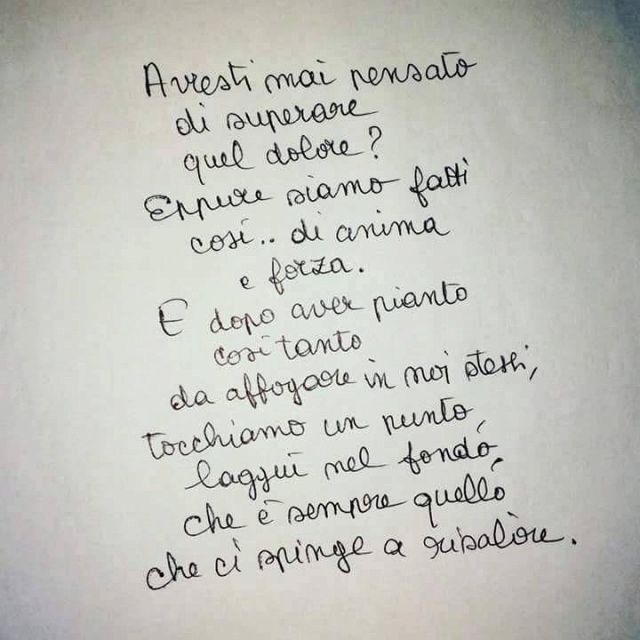 Avresti mai pensato
di superare
quel dolore?
Eppure siamo fatti
così.. di anima
e forza.
E dopo aver pianto
così tanto
da affogare in noi stessi,
tocchiamo un punto,
laggiù nel fondo,
che è sempre quello
che ci spinge a risalire.